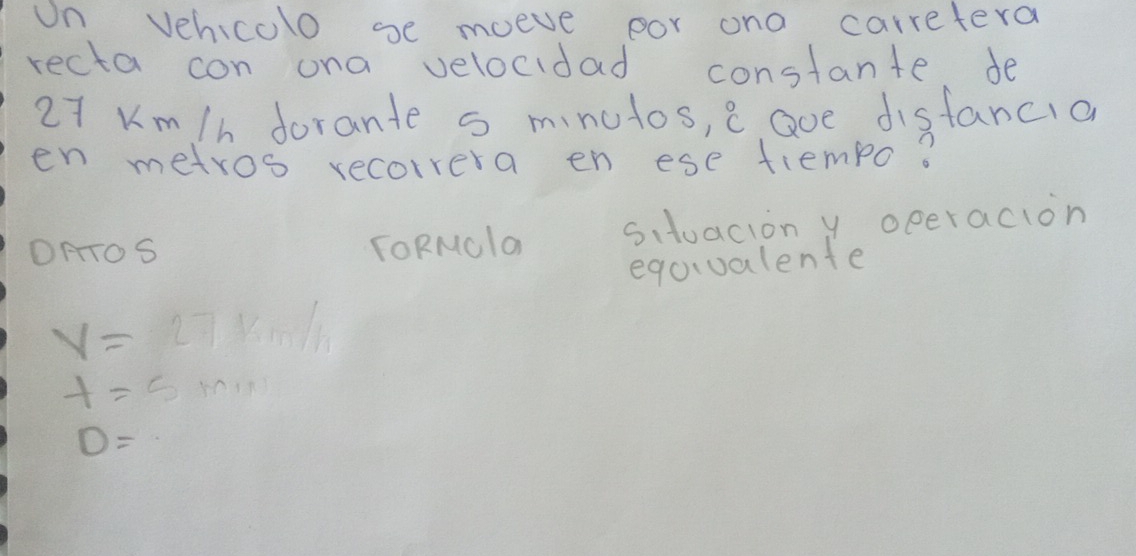 Un vehiculo se mueve por una carretera
recta con una velocidad constante de
27 Km/h durante 5 minutos, ¿ Que distancia
en metros recorrera en ese tiempo?
DATOS FORMula situación y operación
equivalente
V= 27 Km/h
t= 5 min
D=